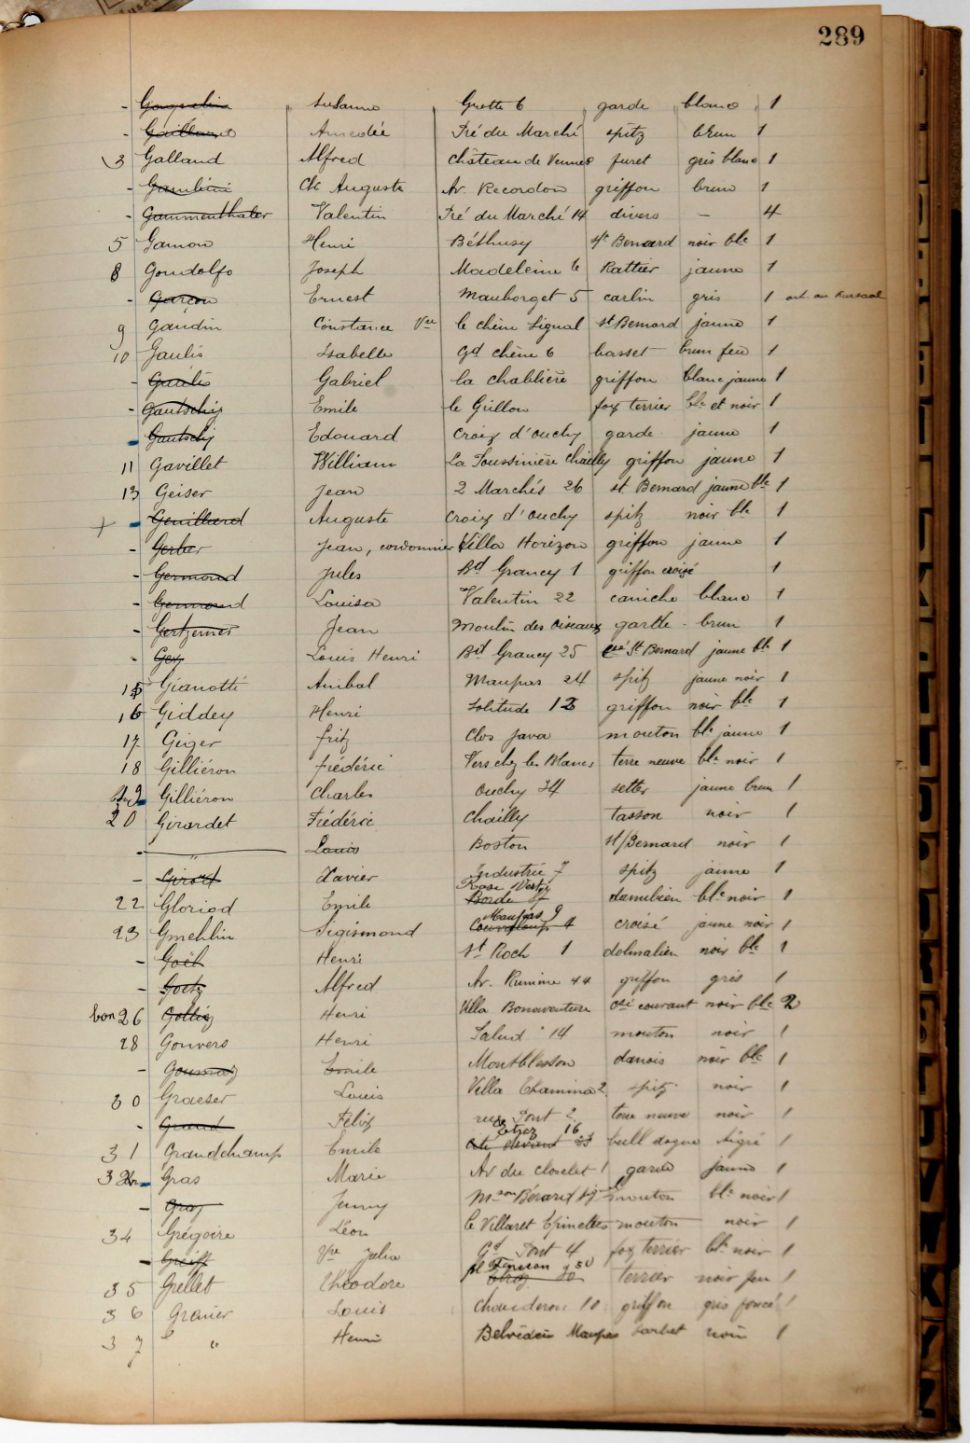 289
- Susanne Grotte 6 garde blanc 1
- Gaillard Amédée Pré du Marché spitz brun 1
3 Galland Alfred Château de Vennes furet gris blanc 1
- Gambini Ch. Auguste Av. Recordon griffon brun 1
- Gammenthaler Valentin Pré du Marché 14 divers - 4
5 Gamon Henri Béthusy St Bernard noir blc 1
8 Gondolfo Joseph Madeleine 6 Rattier jaune 1
- Garçon Ernest Mauborget 5 carlin gris 1 au Kursaal
9 Gaudin Constance Vve le chêne Signal St Bernard jaune 1
10 Gaulis Isabelle Gd chêne 6 basset brun feu 1
- Gaulis Gabriel la chablière griffon blanc jaune 1
- Gautschy Emile le Grillon fox terrier blc et noir 1
- Gautschy Edouard Croix d'ouchy garde jaune 1
11 Gavillet William La Poussinière Chailly griffon jaune 1
13 Geiser Jean 2 Marchés 26 st Bernard jaune blc 1
+ - Genilliard Auguste Croix d'ouchy spitz noir blc 1
- Gerber Jean, cordonnier Villa Horizon griffon jaune 1
- Germond Jules Bd Grancy 1 griffon croisé 1
- Germond Louisa Valentin 22 caniche blanc 1
- Jean Moulin des Oiseaux garde brun 1
- Gex Louis Henri Bd Grancy 25 St Bernard jaune blc 1
15 Gianotti Anibal Maupas 24 spitz jaune noir 1
16 Giddey Henri Solitude 12 griffon noir blc 1
17 Giger fritz Clos java mouton blc jaune 1
18 Gilliéron frédéric Vers chez les Blancs terre neuve blc noir 1
Gilliéron Charles Ouchy 34 setter jaune brun 1
20 Girardet Frédéric Chailly tasson noir 1
- " Louis Boston St/Bernard noir 1
- Girod Xavier Industrie 7 spitz jaune 1
22 Gloriod Emile Borde danubien blc noir 1
23 Gmehlin Sigismond Maupas 9 croisé jaune noir 1
- Goël Henri St Roch 1 dalmatien noir blc 1
- Goetz Alfred Av. Rumine 44 griffon gris 1
bon 26 Henri Villa Bonaventure courant noir blc 2
28 Gonvers Henri Valent. 14 mouton noir 1
- Emile Montblesson danois noir blc 1
30 Graeser Louis Villa Chamina 2 spitz noir 1
- Grand Félix rue Pont 2 terre neuve noir 1
31 Grandchamp Emile Etraz 16 bull dogue tigré 1
32 Gras Marie Av du closelet 1 garde jaune 1
- Jenny Mson Bérard mouton blc noir 1
34 Grégoire Léon le Villaret Epinettes mouton noir 1
- Greiff Vve Julia Gd Pont 4 fox terrier blc noir 1
35 Grellet Théodore terrier noir feu 1
36 Grenier Louis Chauderon 10 griffon gris foncé 1
37 " " Henri Belvédère Maupas barbet noir 1